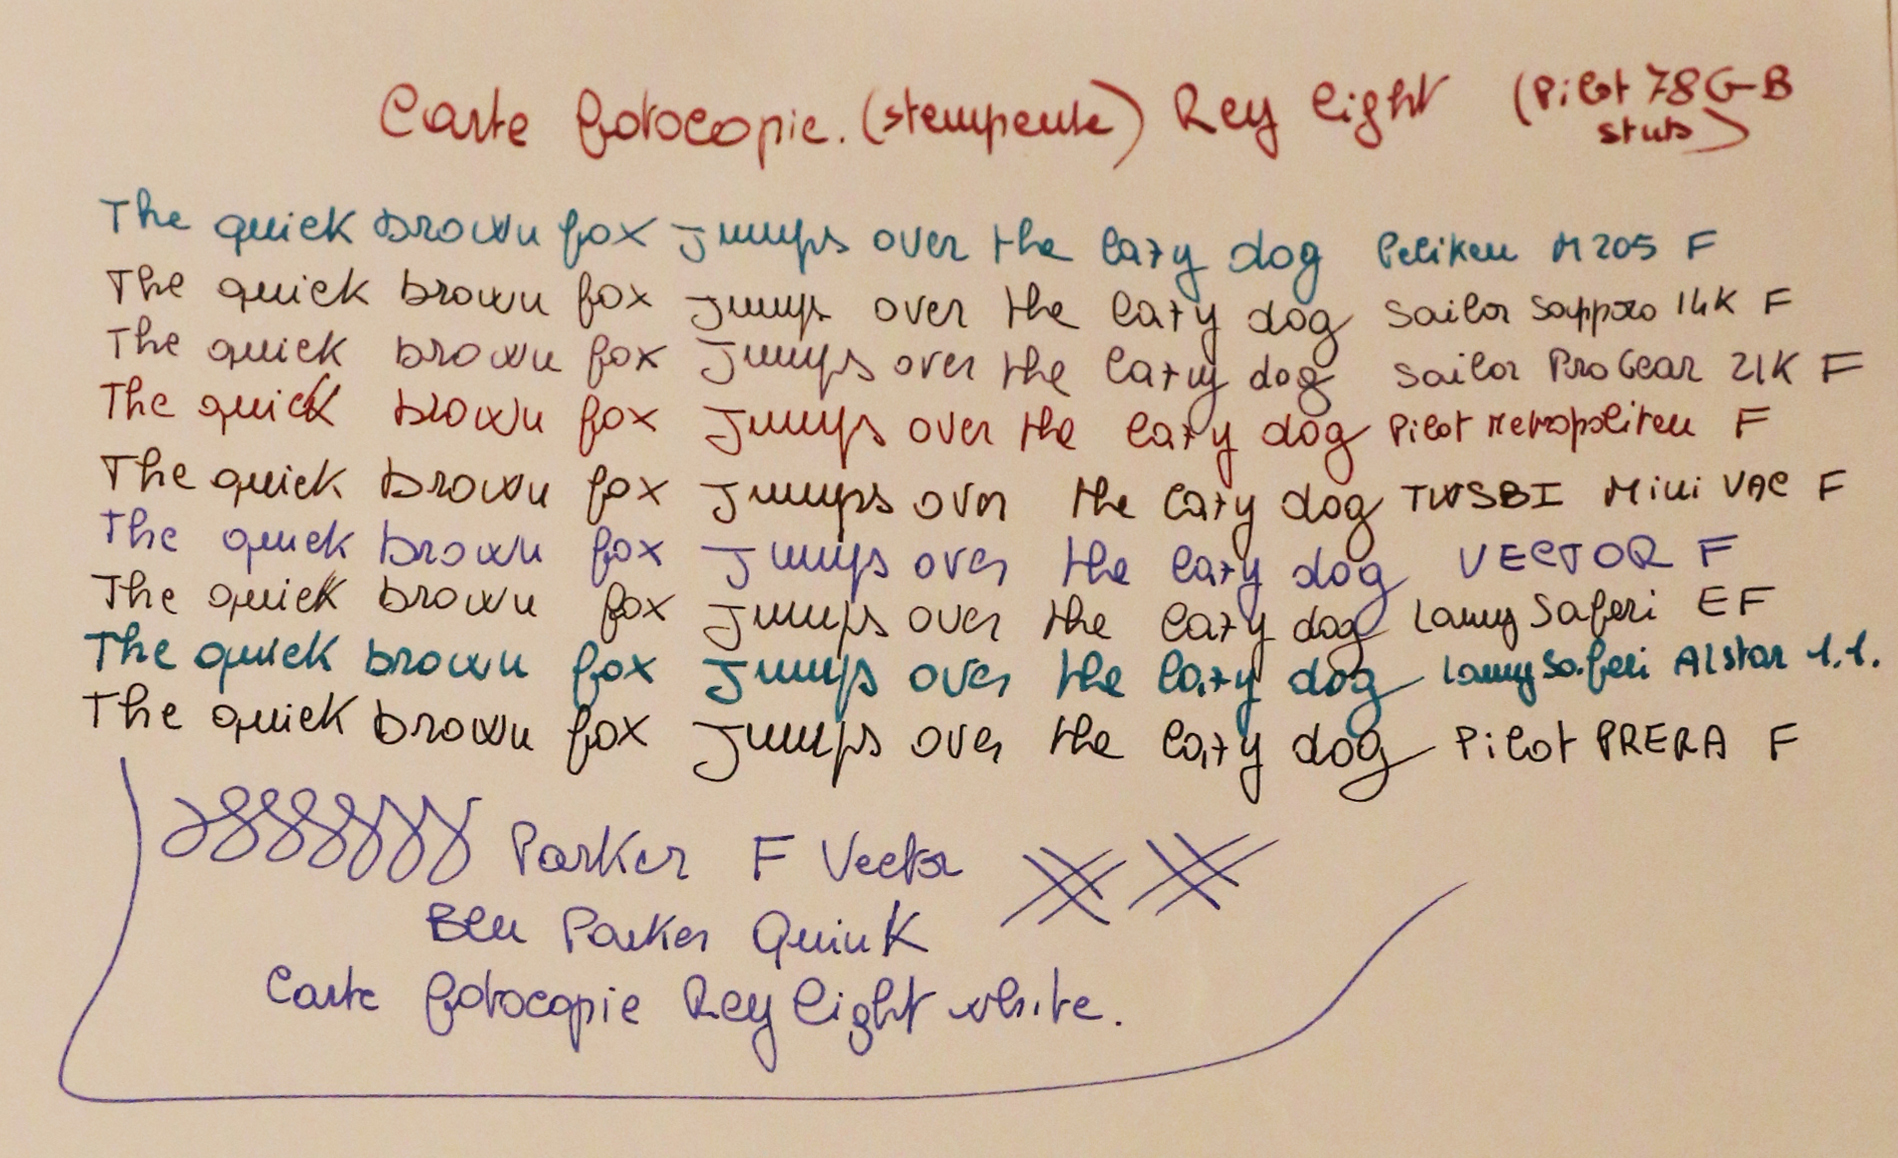 Carte fotocopie. (stampante) Rey light (Pilot 78G-B
stub)
The quick brown fox jumps over the lazy dog Pelikan M205 F
The quick brown fox jumps over the lazy dog Sailor Sapporo 14K F
The quick brown fox jumps over the lazy dog Sailor ProGear 21K F
The quick brown fox jumps over the lazy dog Pilot Metropolitan F
The quick brown fox jumps over the lazy dog TWSBI Mini VAC F
The quick brown fox jumps over the lazy dog VECTOR F
The quick brown fox jumps over the lazy dog Lamy Safari EF
The quick brown fox jumps over the lazy dog Lamy Safari Alstar 1.1.
The quick brown fox jumps over the lazy dog Pilot PRERA F
Parker F Vector
Blu Parker Quink
Carte fotocopie Rey light white.